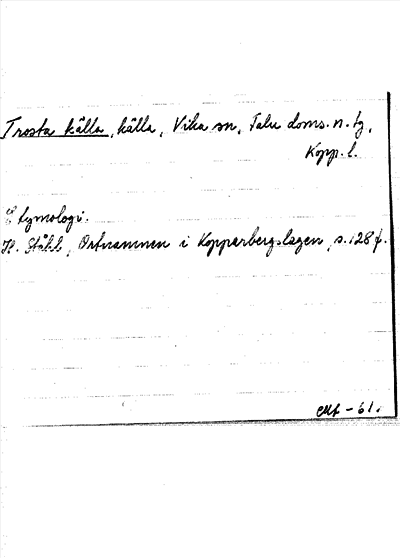 Trosta källa, källa, Vika sn, Falu doms. n. tg,
Kopp. l.
Etymologi.
H. Ståhl, Ortnamnen i Kopparbergslagen, s. 128 f.
-61.